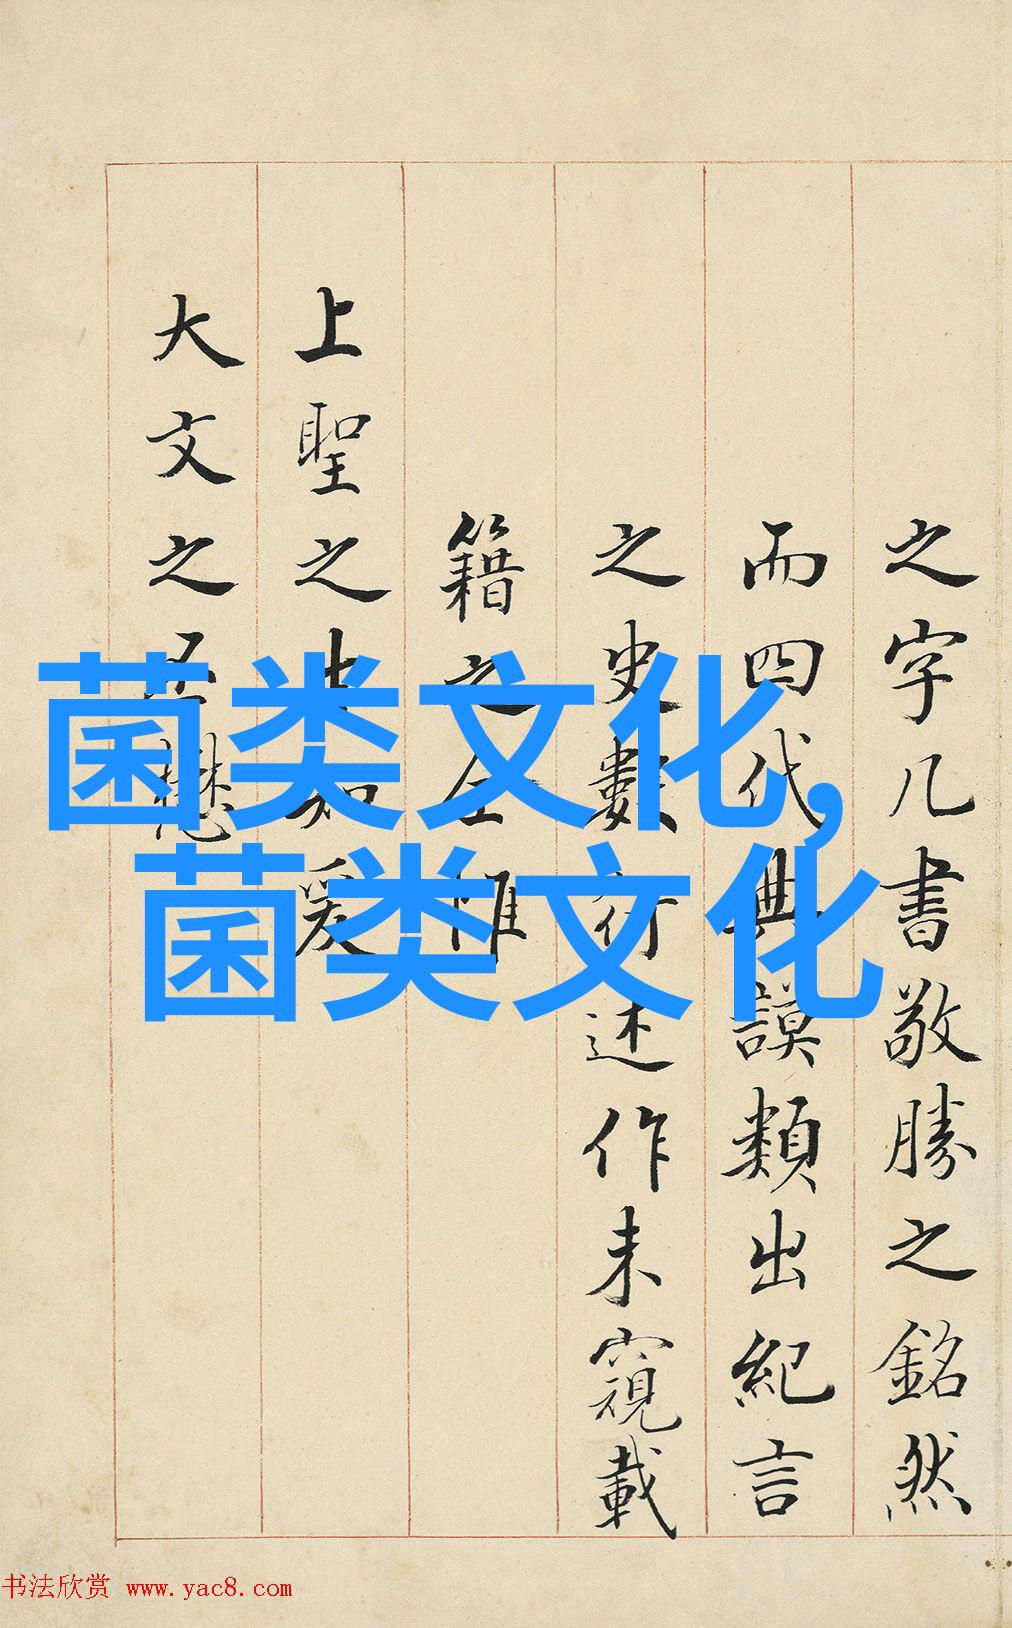 之字几書敬勝之銘然
而四代典謨類出紀言
之史數述作未窺載
籍之全惟
上聖之生知爰
大文之丕懋
菌类文化,
菌类文化
书法欣赏 www.yac8.com